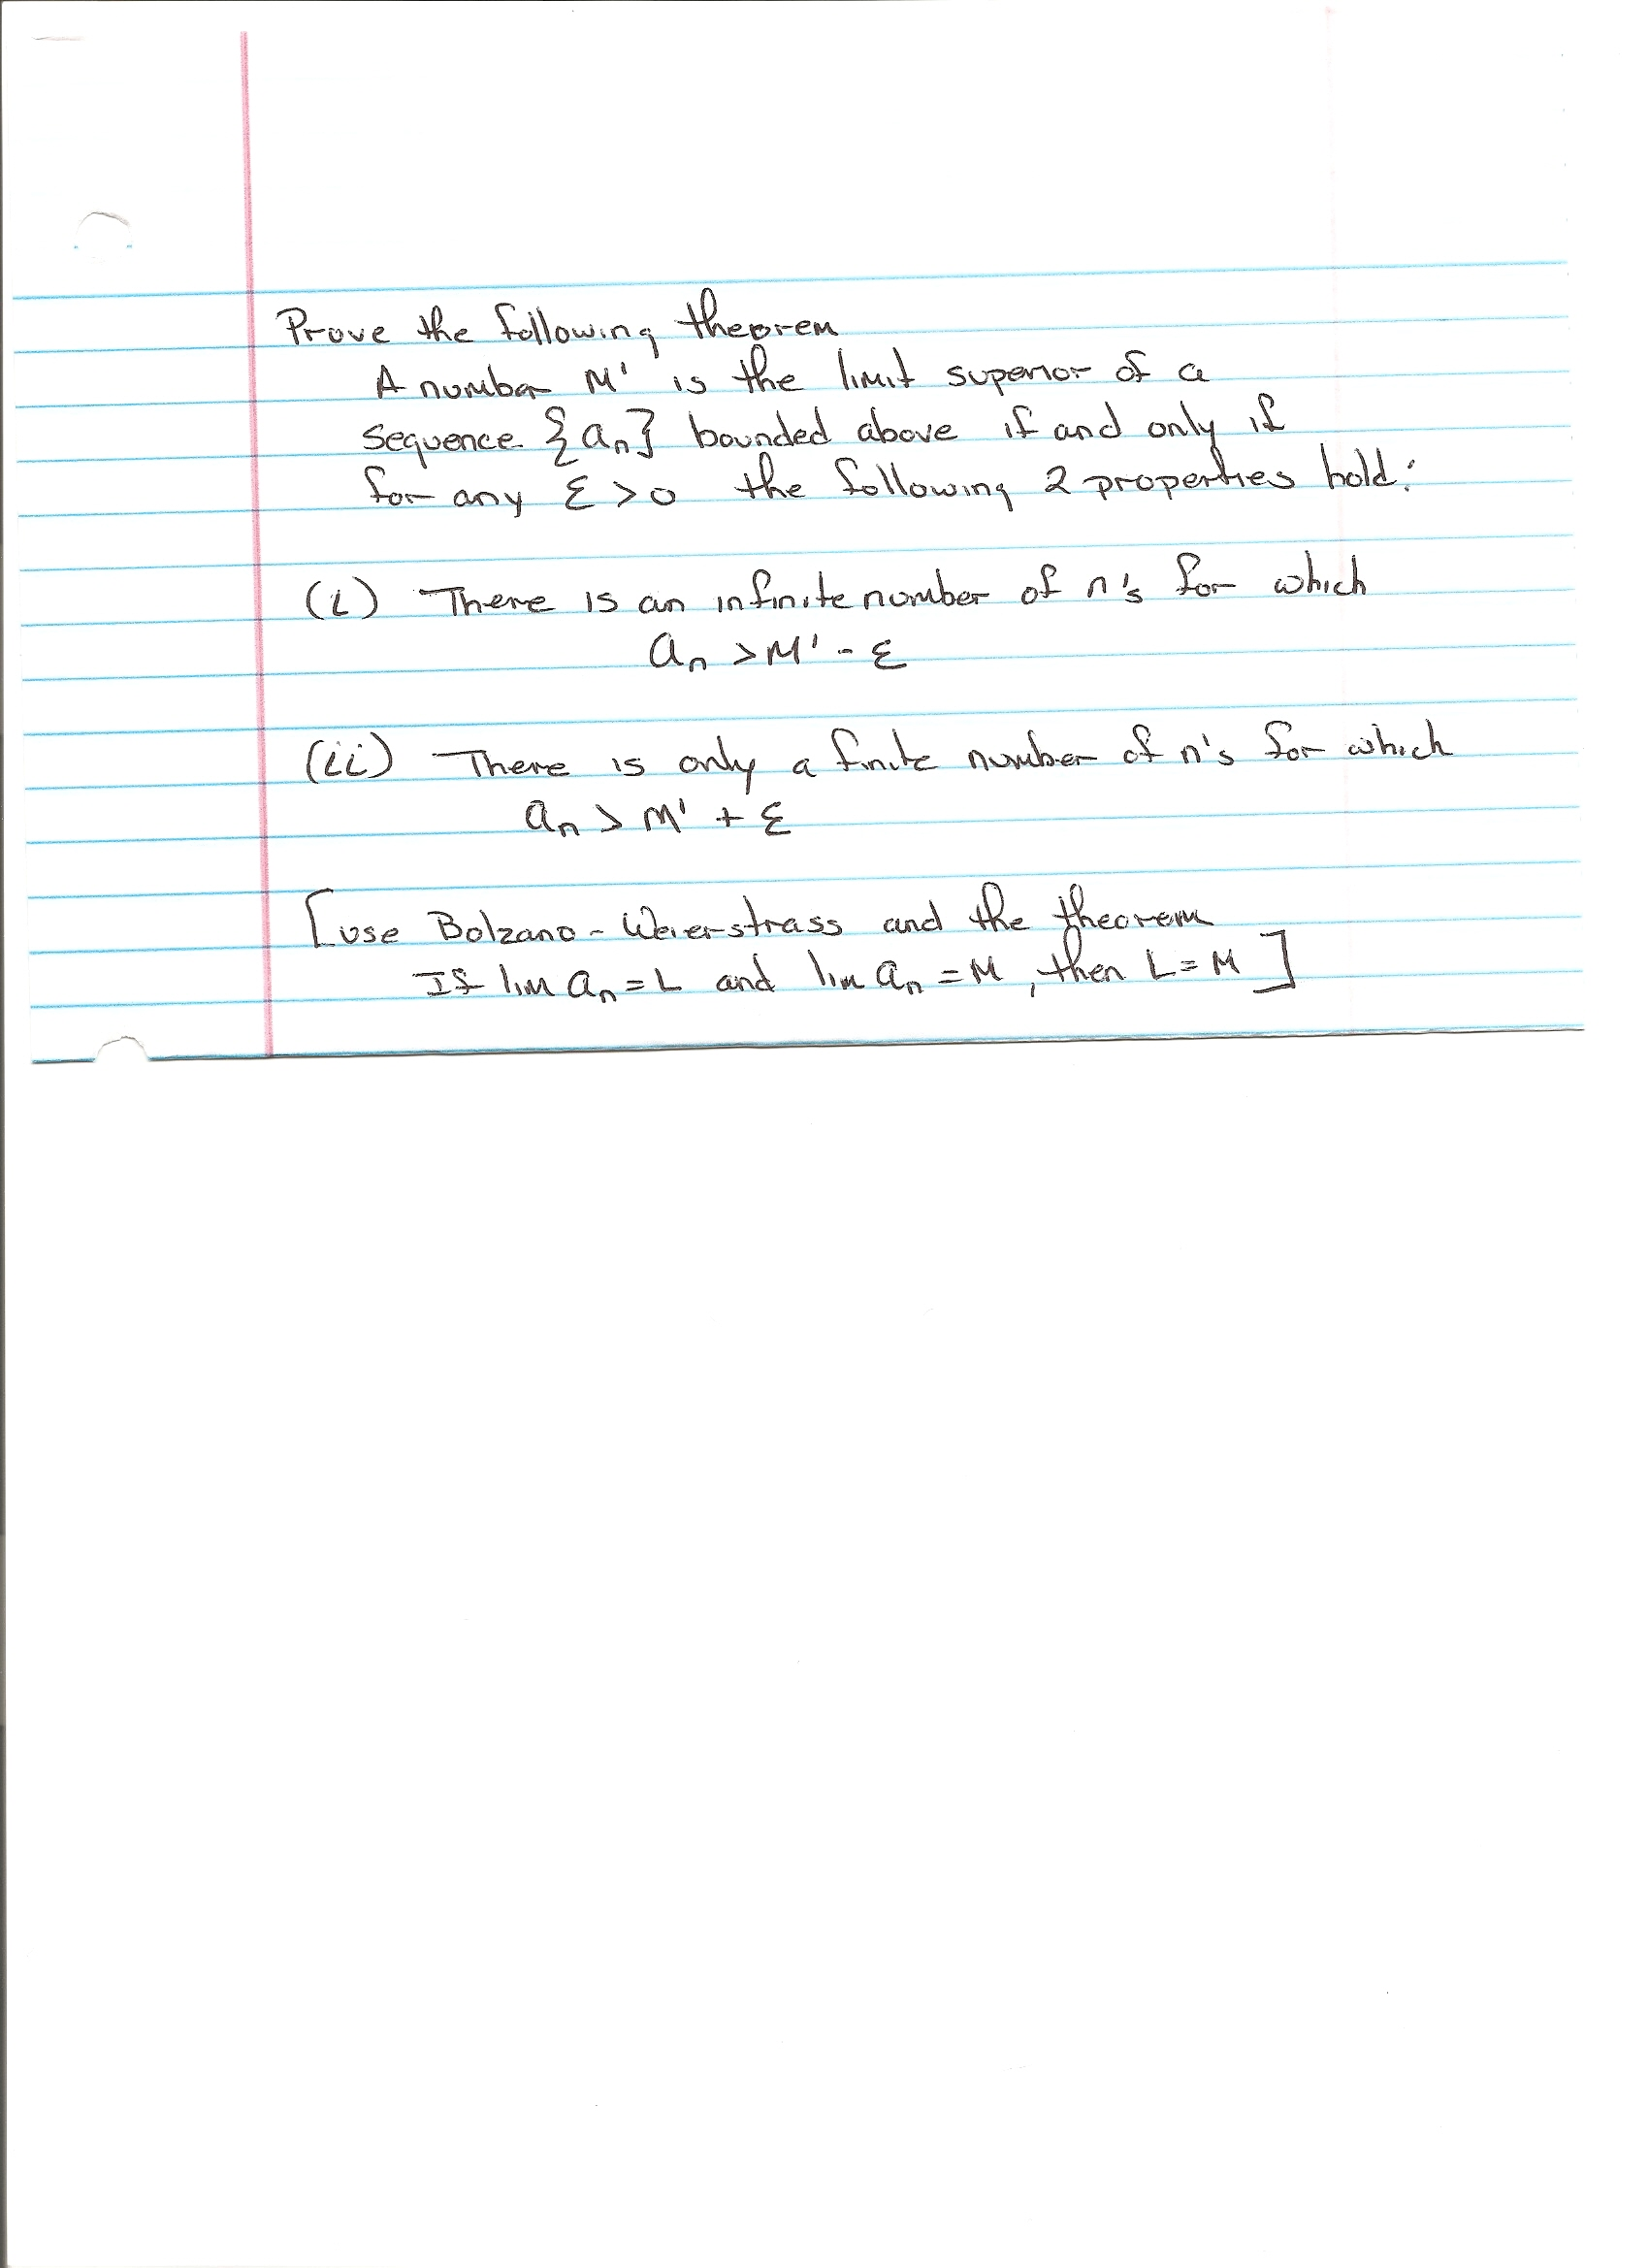 Prove the following theorem
A number M' is the limit superior of a
sequence {an} bounded above if and only if
for any ε > 0 the following 2 properties hold:
(i) There is an infinite number of n's for which
an > M' - ε
(ii) There is only a finite number of n's for which
an > M' + ε
[use Bolzano - Weierstrass and the theorem
If lim an = L and lim an = M, then L = M ]